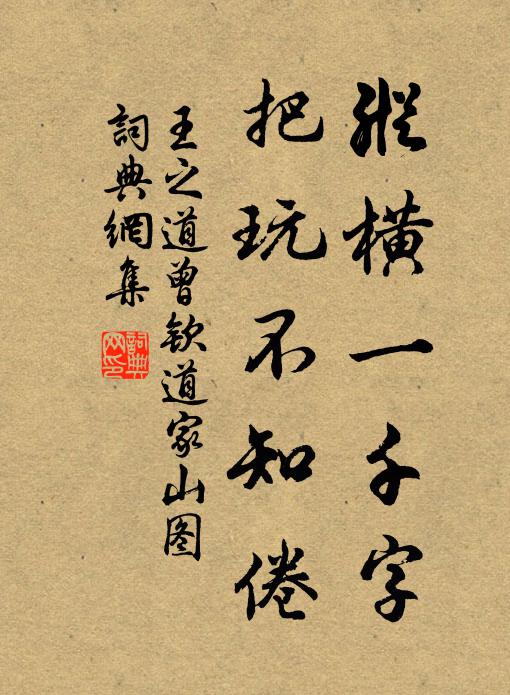 縱橫一千字
把玩不知倦
王之道曾欽道家山图
詞典網集
詞典网印